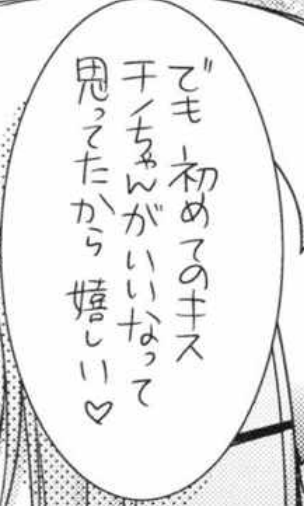 でも 初めてのキス
チノちゃんがいいなって
思ってたから 嬉しい♡